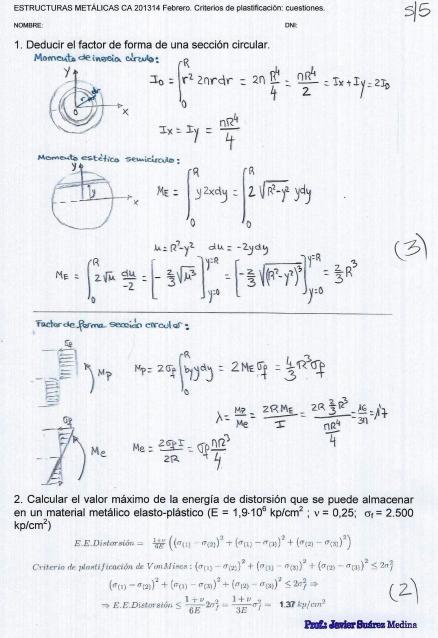 ESTRUCTURAS METÁLICAS CA 201314 Febrero. Criterios de plastificación: cuestiones.
5/5
NOMBRE: DNI:
1. Deducir el factor de forma de una sección circular.
Momento de inercia círculo:
y
r dr
0
x
I₀ = ∫₀ᴿ r² 2πrdr = 2π R⁴/4 = πR⁴/2 = Ix + Iy = 2I₀
Ix = Iy = πR⁴/4
Momento estático semicírculo:
y
y
x
ME = ∫₀ᴿ y2xdy = ∫₀ᴿ 2 √(R²-y²) ydy
u = R²-y² du = -2ydy
(3)
ME = ∫₀ᴿ 2√u du/-2 = [-2/3 √u³]y=0 y=R = [-2/3 √(R²-y²)³]y=0 y=R = 2/3 R³
Factor de forma sección circular:
σf
Mp
Mp = 2σf ∫₀ᴿ by ydy = 2 ME σf = 4/3 R³ σf
λ = Mp/Me = 2R ME/I = 2R 2/3 R³ / πR⁴/4 = 16/3π = 1,7
σf
Me
Me = 2σf I/2R = σf πR³/4
2. Calcular el valor máximo de la energía de distorsión que se puede almacenar
en un material metálico elasto-plástico (E = 1,9·10⁶ kp/cm² ; ν = 0,25; σf = 2.500
kp/cm²)
E.E.Distorsión = 1+ν/6E ((σ(1) − σ(2))² + (σ(1) − σ(3))² + (σ(2) − σ(3))²)
Criterio de plastificación de VonMises : (σ(1) − σ(2))² + (σ(1) − σ(3))² + (σ(2) − σ(3))² ≤ 2σf²
(σ(1) − σ(2))² + (σ(1) − σ(3))² + (σ(2) − σ(3))² ≤ 2σf² ⇒
(2)
⇒ E.E.Distorsión ≤ 1+ν/6E 2σf² = 1+ν/3E σf² = 1.37 kp/cm²
Prof.: Javier Suárez Medina